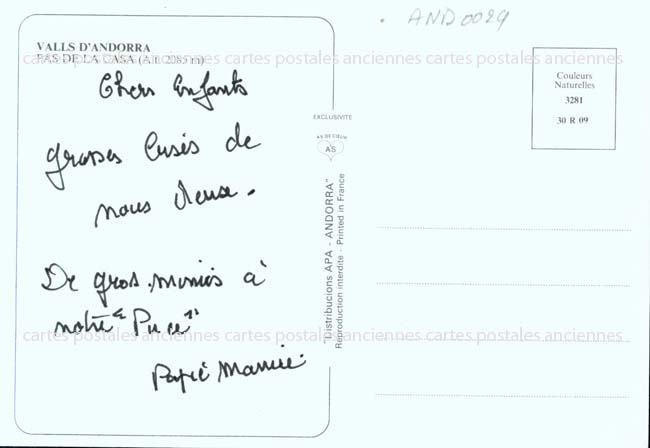 AND0029
VALLS D'ANDORRA
PAS DE LA CASA (Alt. 2085 m)
cartes postales anciennes cartes postales anciennes cartes postales anciennes
Chers Enfants
grosses bises de
nous deux.
De gros mimis à
notre "Puce"
Papie Mamie.
cartes postales anciennes cartes postales anciennes cartes postales anciennes
EXCLUSIVITE
AS DE CŒUR
AS
"Distribucions APA - ANDORRA"
Reproduction interdite - Printed in France
Couleurs
Naturelles
3281
30 R 09